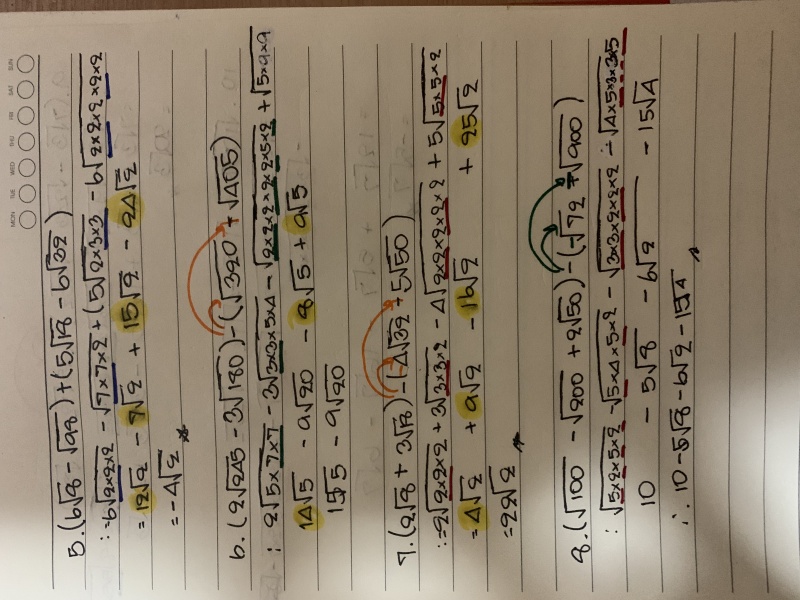 MON TUE WED THU FRI SAT SUN
5. (6√8 - √98) + (5√18 - 6√32)
: = 6√2×2×2 - √7×7×2 + (5√2×3×3 - 6√2×2×2×2×2
= 12√2 - 7√2 + 15√2 - 24√2
= -4√2
6. (2√245 - 3√180) - (√320 + √405)
: 2√5×7×7 - 3√3×3×5×4 - √2×2×2×2×2×5×2 + √5×9×9
14√5 - 9√20 - 8√5 + 9√5
15√5 - 9√20
7. (2√8 + 3√18) - (4√32 + 5√50)
: = 2√2×2×2 + 3√3×3×2 - 4√2×2×2×2×2 + 5√5×5×2
= 4√2 + 9√2 - 16√2 + 25√2
= 22√2
8. (√100 - √200 + 2√50) - (√72 + √900)
: √5×2×5×2 - √5×4×5×2 - √3×3×2×2×2 - √4×5×3×3×5
10 - 5√8 - 6√2 - 15√4
∴ 10 - 5√8 - 6√2 - 15√4